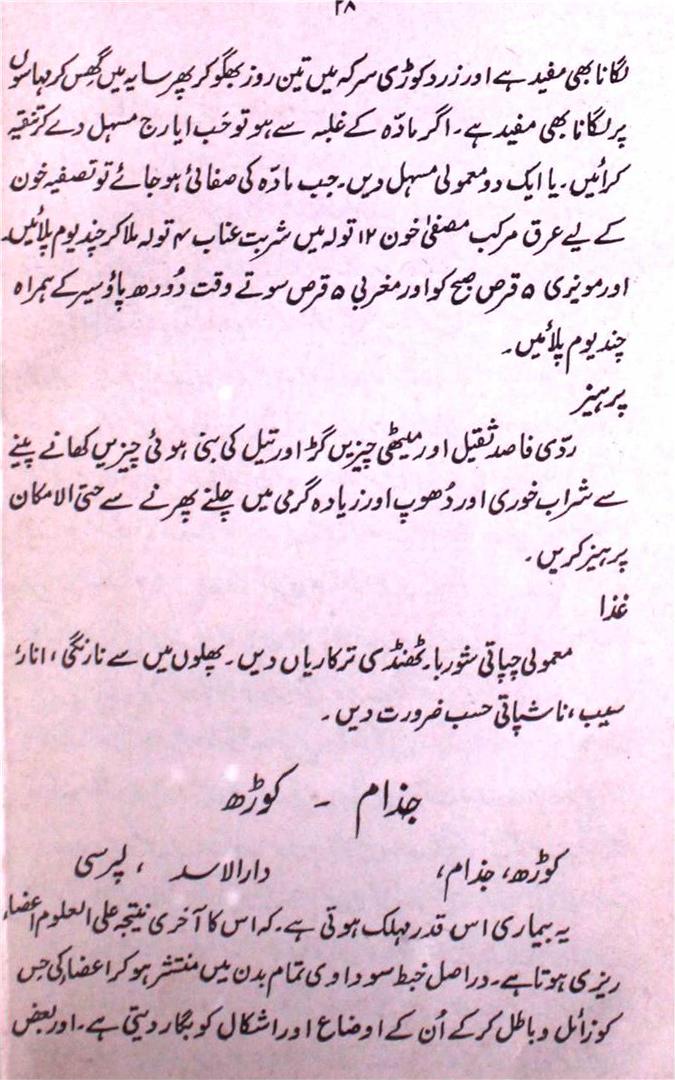 ۲۸
لگانا بھی مفید ہے اور زرد کوڑی سرکہ میں تین روز بھگو کر پھر سایہ میں گھِس کر مہاسوں
پر لگانا بھی مفید ہے۔ اگر مادّہ کے غلبہ سے ہو تو حَب ایارج مسہل دے کر تنقیہ
کرائیں۔ یا ایک دو معمولی مسہل دیں۔ جب مادّہ کی صفائی ہو جائے تو تصفیہ خون
کے لیے عرق مرکب مصفیٰ خون ۱۲ تولہ میں شربت عناب ۴ تولہ ملا کر چند یوم پلائیں۔
اور مویزی ۵ قرص صبح کو اور مغربی ۵ قرص سوتے وقت دُودھ پاؤ سیر کے ہمراہ
چند یوم پلائیں۔
پرہیز
ردّی فاصد ثقیل اور میٹھی چیزیں گڑ اور تیل کی بنی ہوئی چیزیں کھانے پینے
سے شراب خوری اور دُھوپ اور زیادہ گرمی میں چلنے پھرنے سے حتی الامکان
پرہیز کریں۔
غذا
معمولی چپاتی شوربا۔ ٹھنڈی ترکاریاں دیں۔ پھلوں میں سے نارنگی، انار
سیب، ناشپاتی حسب ضرورت دیں۔
جذام - کوڑھ
کوڑھ، جذام، دارالاسد ، لپرسی
یہ بیماری اس قدر مہلک ہوتی ہے۔ کہ اس کا آخری نتیجہ علی العلوم اعضاء
ریزی ہوتا ہے۔ دراصل خبط سوداوی تمام بدن میں منتشر ہو کر اعضاء کی حِس
کو زائل و باطل کر کے اُن کے اوضاع اور اشکال کو بگار دیتی ہے۔ اور بعض